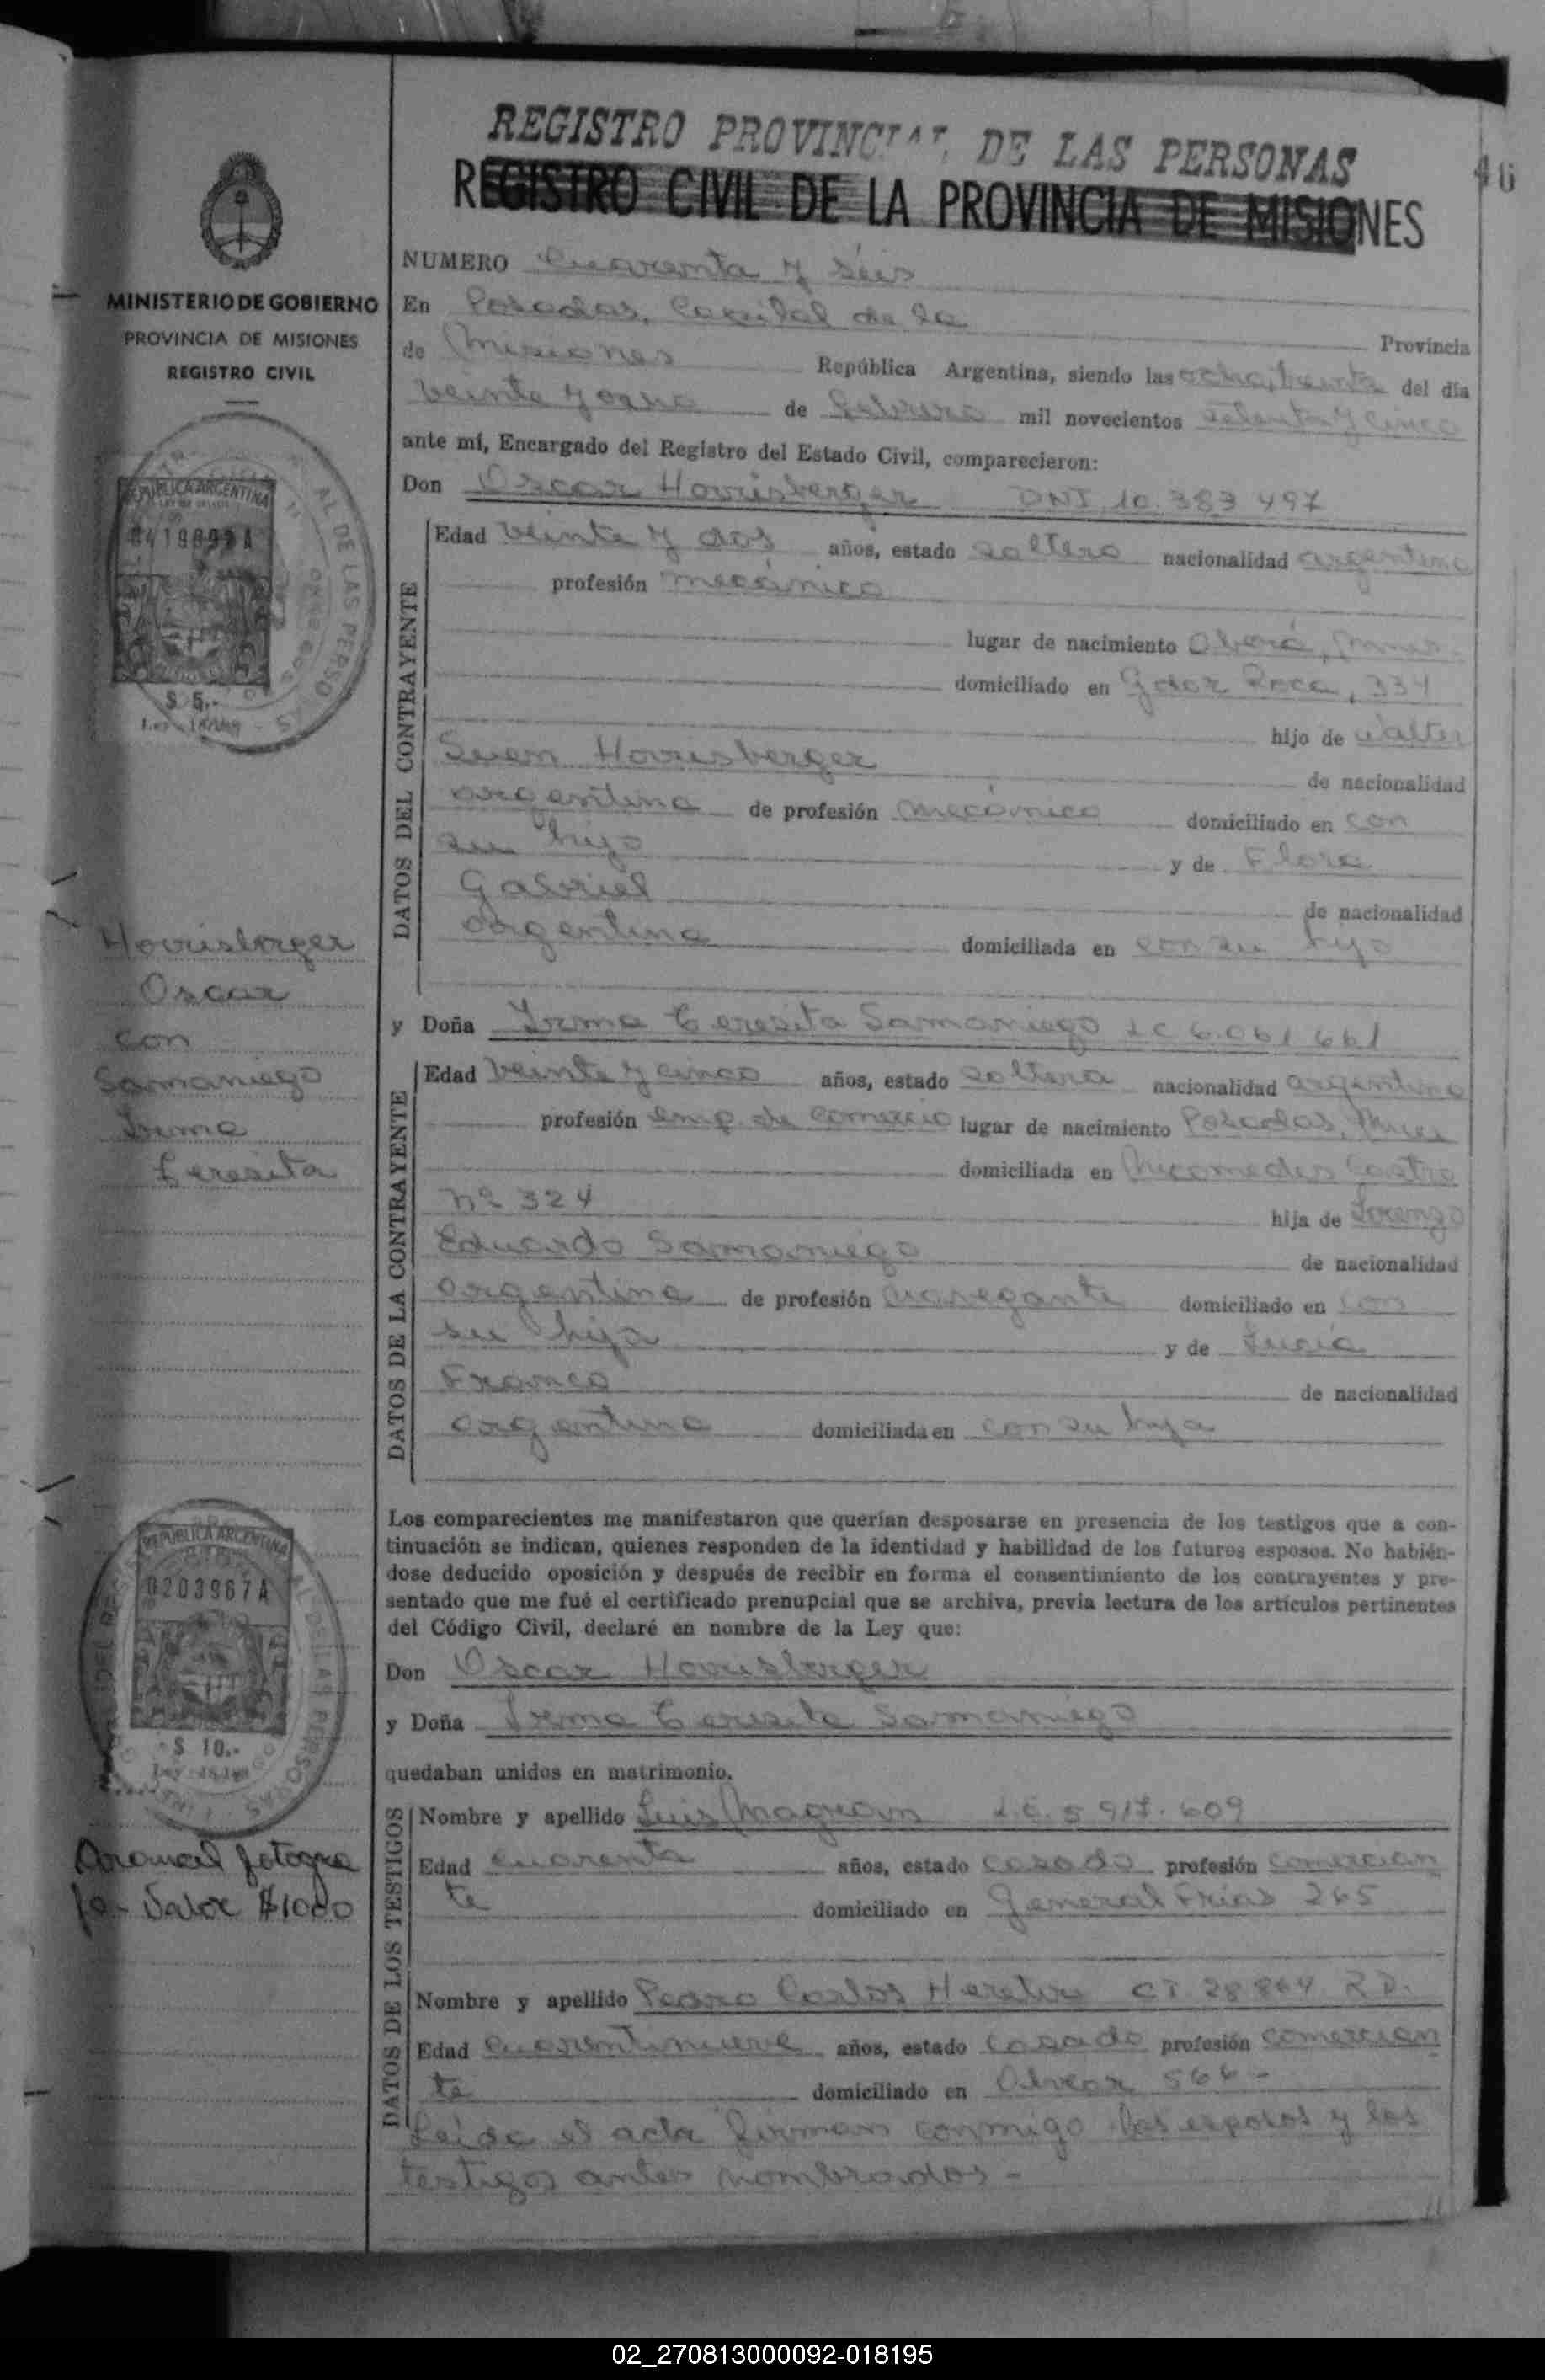 REGISTRO PROVINCIAL DE LAS PERSONAS
REGISTRO CIVIL DE LA PROVINCIA DE MISIONES
46
MINISTERIO DE GOBIERNO
PROVINCIA DE MISIONES
REGISTRO CIVIL
NUMERO Cuarenta y seis
En Posadas, Capital de la Provincia
de Misiones República Argentina, siendo las ocho, treinta del día
veinte y ocho de febrero mil novecientos setenta y cinco
ante mí, Encargado del Registro del Estado Civil, comparecieron:
Don Oscar Hourisberger DNI 10.383.497
DATOS DEL CONTRAYENTE
Edad veinte y dos años, estado soltero nacionalidad argentina
profesión mecánico
lugar de nacimiento Oberá, Mnes.
domiciliado en Gdor Roca, 334
hijo de Walter
Hourisberger de nacionalidad
argentina de profesión mecánico domiciliado en con
su hijo y de Flora
Gabriel de nacionalidad
argentina domiciliada en con su hijo
Hourisberger
Oscar
con
Samaniego
Irma
Teresita
y Doña Irma Teresita Samaniego LC 6.061.661
DATOS DE LA CONTRAYENTE
Edad veinte y cinco años, estado soltera nacionalidad argentina
profesión emp. de comercio lugar de nacimiento Posadas, Mnes
domiciliada en Nicomedes Castro
nº 324 hija de Lorenzo
Eduardo Samaniego de nacionalidad
argentina de profesión navegante domiciliado en con
su hija y de Lucía
Franco de nacionalidad
argentina domiciliada en con su hija
Los comparecientes me manifestaron que querían desposarse en presencia de los testigos que a con-
tinuación se indican, quienes responden de la identidad y habilidad de los futuros esposos. No habién-
dose deducido oposición y después de recibir en forma el consentimiento de los contrayentes y pre-
sentado que me fué el certificado prenupcial que se archiva, previa lectura de los artículos pertinentes
del Código Civil, declaré en nombre de la Ley que:
Don Oscar Hourisberger
y Doña Irma Teresita Samaniego
quedaban unidos en matrimonio.
REPUBLICA ARGENTINA
$ 5.-
REPUBLICA ARGENTINA
0203967A
$ 10.-
Arancel fotogra
fo - Valor $1000
DATOS DE LOS TESTIGOS
Nombre y apellido Luis
Edad cuarenta años, estado casado profesión comercian
te domiciliado en General Frías 265
Nombre y apellido Pedro Carlos
Edad cuarentinueve años, estado casado profesión comercian
te domiciliado en Alvear 566 -
Leída el acta firman conmigo los esposos y los
testigos antes nombrados -
02_270813000092-018195